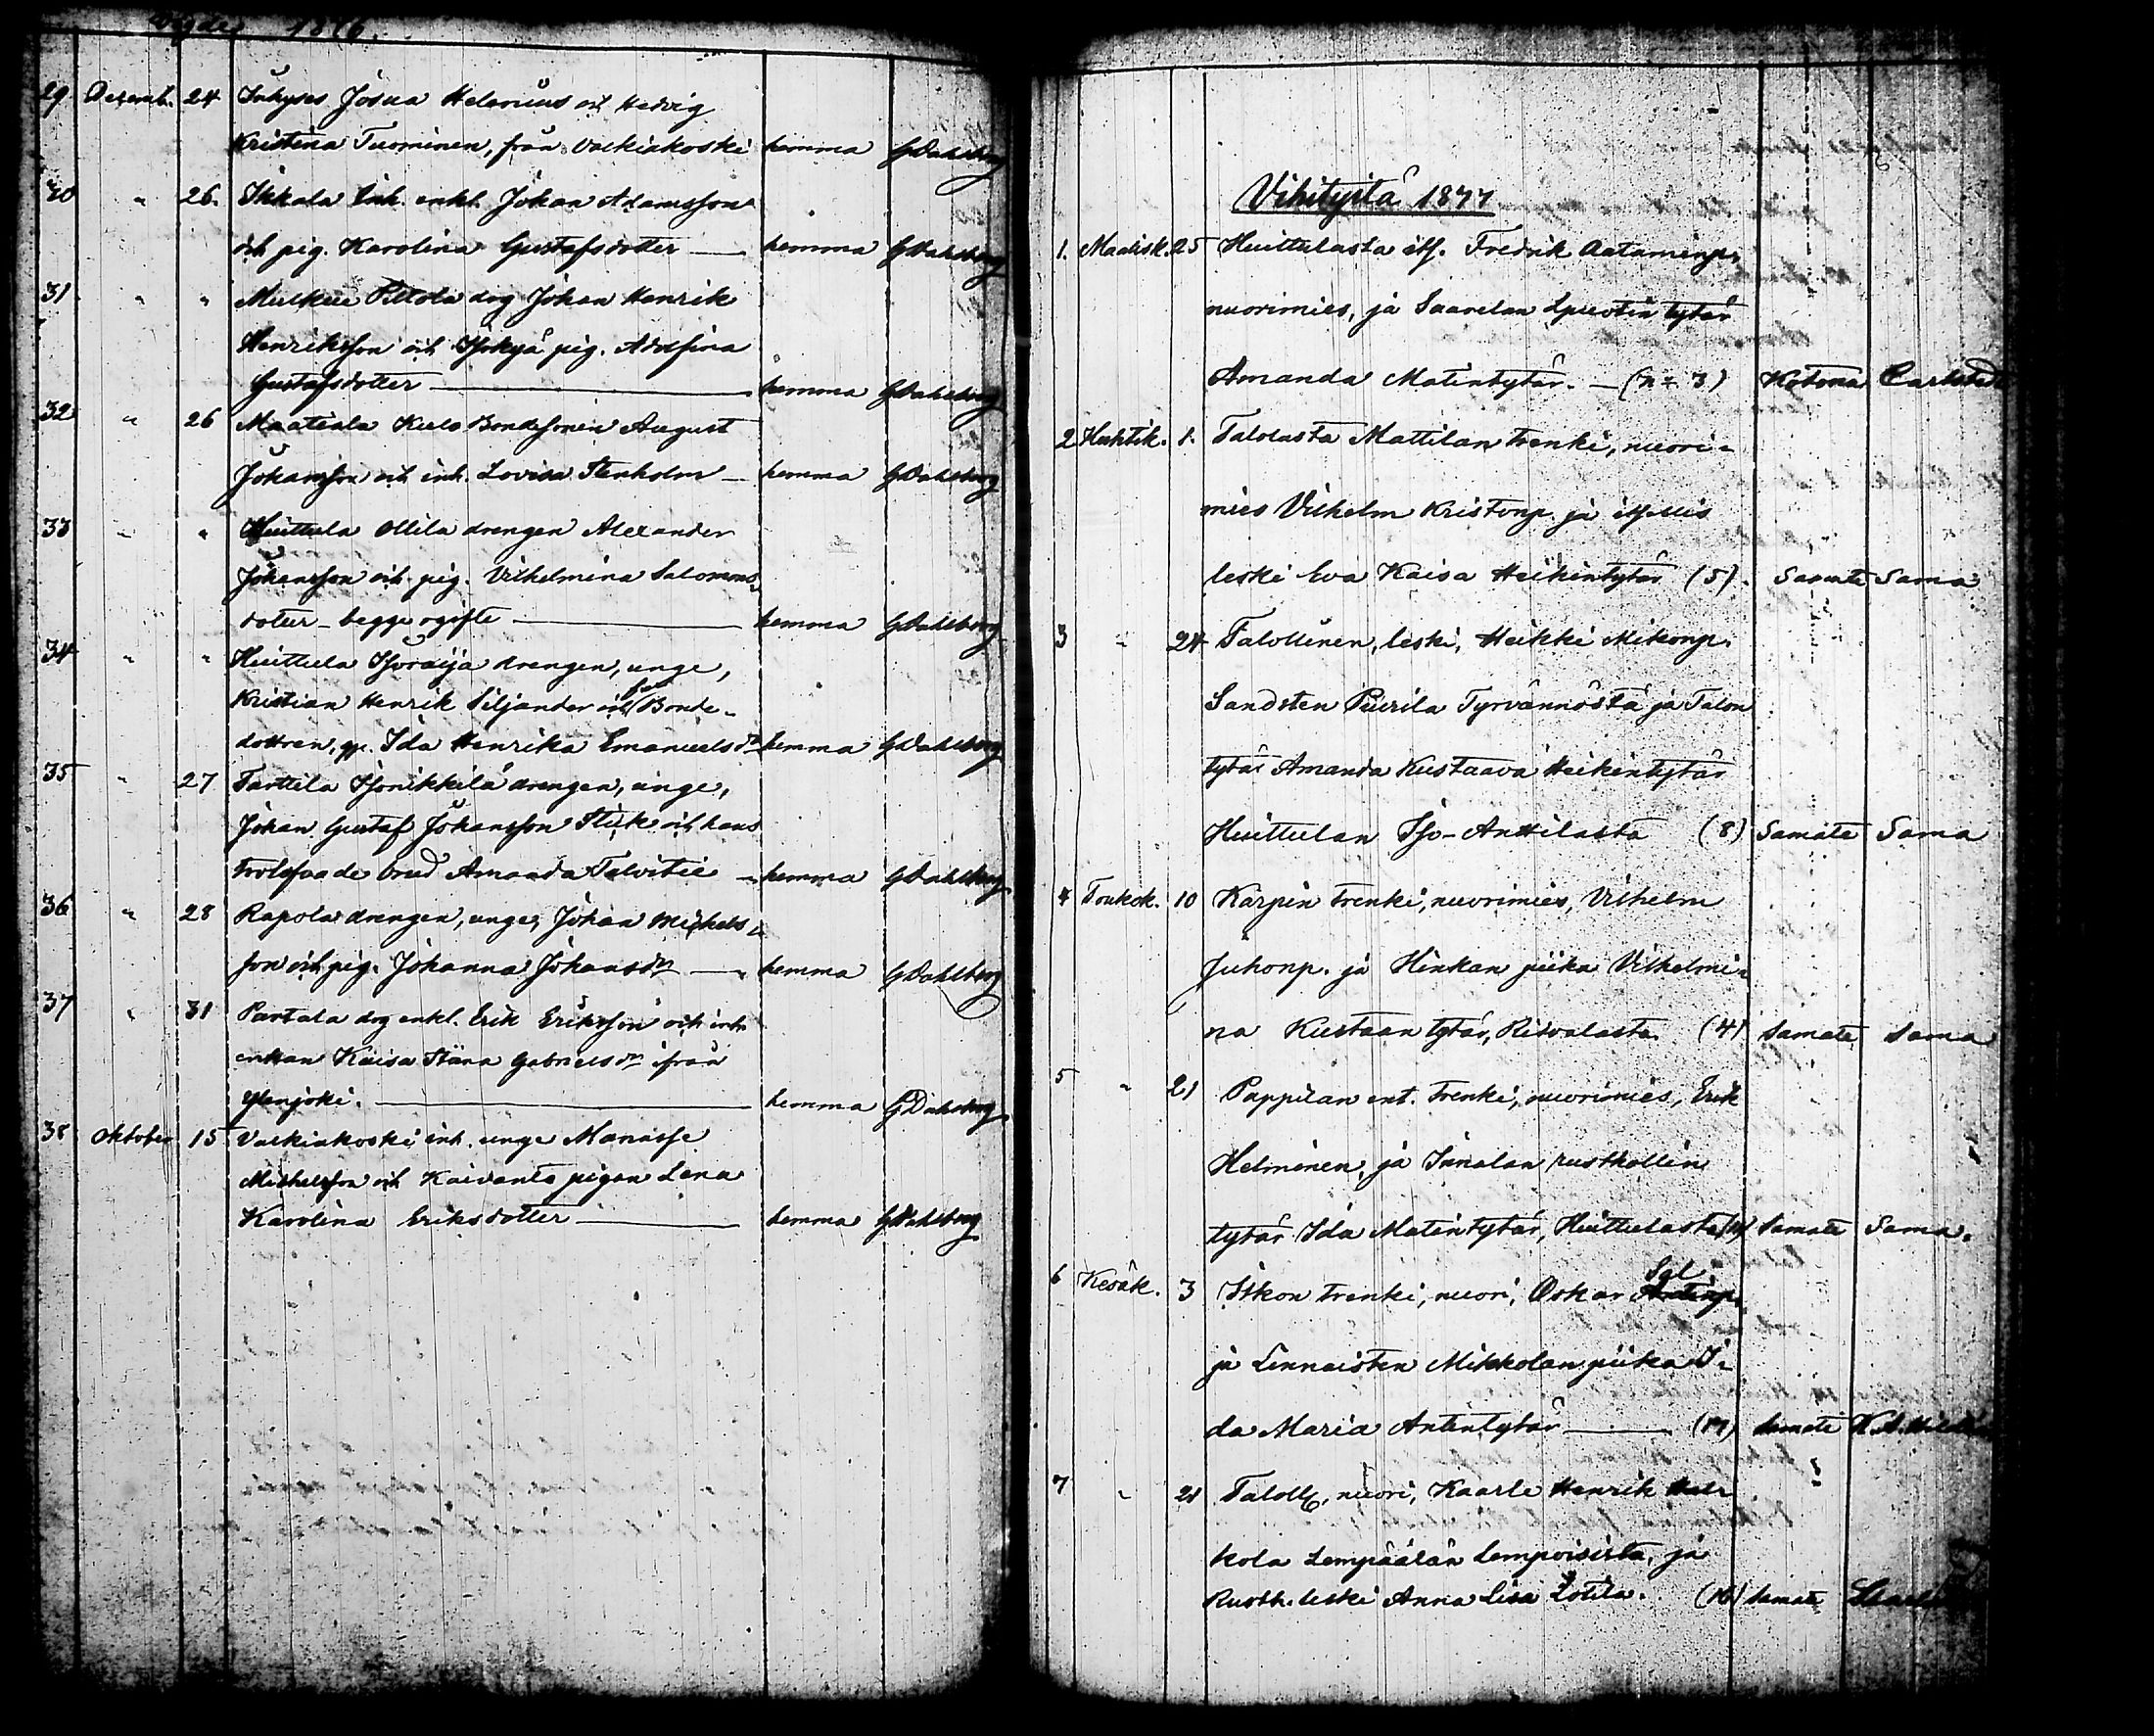 Vigde 1876.
29 Decemb. 24 Inhyses Josua Helenius och Hedvig
Kristina Tuominen, från Valkiakoski hemma GDahlberg
30 " 26. Ikkala Inh. enkl. Johan Adamsson
och pig. Karolina Gustafsdotter — hemma GDahlberg
31 " " drg Johan Henrik
Henriksson och pig. Adolfina
Gustafsdotter — hemma GDahlberg
32 " 26 Maatiala Bondesonen August
Johansson och inh. Lovisa Stenholm — hemma GDahlberg
33 " " Huittula Ollila drengen Alexander
Johansson och pig. Vilhelmina Salomons
dotter — begge ogifte — hemma GDahlberg
34 " " Huittula drengen, unge,
Kristian Henrik Siljander och Bonde-
dottren, Ida Henrika Emanuelsdr hemma GDahlberg
35 " 27 Tarttila drengen, unge,
Johan Gustaf Johansson och hans
trolofvade brud Amanda Talvitie — hemma GDahlberg
36 " 28 Rapola drengen, unge, Johan Michels
son och pig. Johanna Johansdr — hemma GDahlberg
37 " 31 Partala drg enkl. Erik Eriksson och inh
enkan Kaisa Stäna Gabrielsdr ifrån
— hemma GDahlberg
38 Oktober 15 Valkiakoski inh. unge Manasse
Michelsson och Kaivanto pigan Lena
Karolina Eriksdotter — hemma GDahlberg
Vihityitä 1877
1. Maalisk. 25 Huittulasta its. Fredrik Aataminp.
nuorimies, ja Saarelan tytär
Amanda Matintytär. — (n= 3) Kotona Carlstedt
2 Huhtik. 1. Talolasta Mattilan trenki, nuori-
mies Vilhelm Kristonp. ja
leski Eva Kaisa Heikintytär (5). Samate Sama
3 " 24 Talollinen, leski, Heikki Mikonp.
Sandsten Piirilä Tyrvännöstä ja Talon
tytär Amanda Kustaava Heikintytär
Huittulan Iso-Anttilasta (8) Samate Sama
4 Toukok. 10 Karpin trenki, nuorimies, Vilhelm
Juhonp. ja Hinkan piika Vilhelmi-
na Kustaantytär, Ritvalasta. (4) Samate Sama
5 " 21 Pappilan ent. trenki, nuorimies, Erik
Helminen, ja Innalan rusthollin
tytär Ida Matintytär, Huittulasta Samate Sama.
6 Kesäk. 3 Itkon trenki, nuori, Oskar
ja Linnaisten Mikkolan piika I-
da Maria Antintytär — (17) Samate
7 " 21 nuori, Kaarle Henrik
kola Lempäälän Lempoisista, ja
Rusth. leski Anna Lisa Lotila. (16) Samate